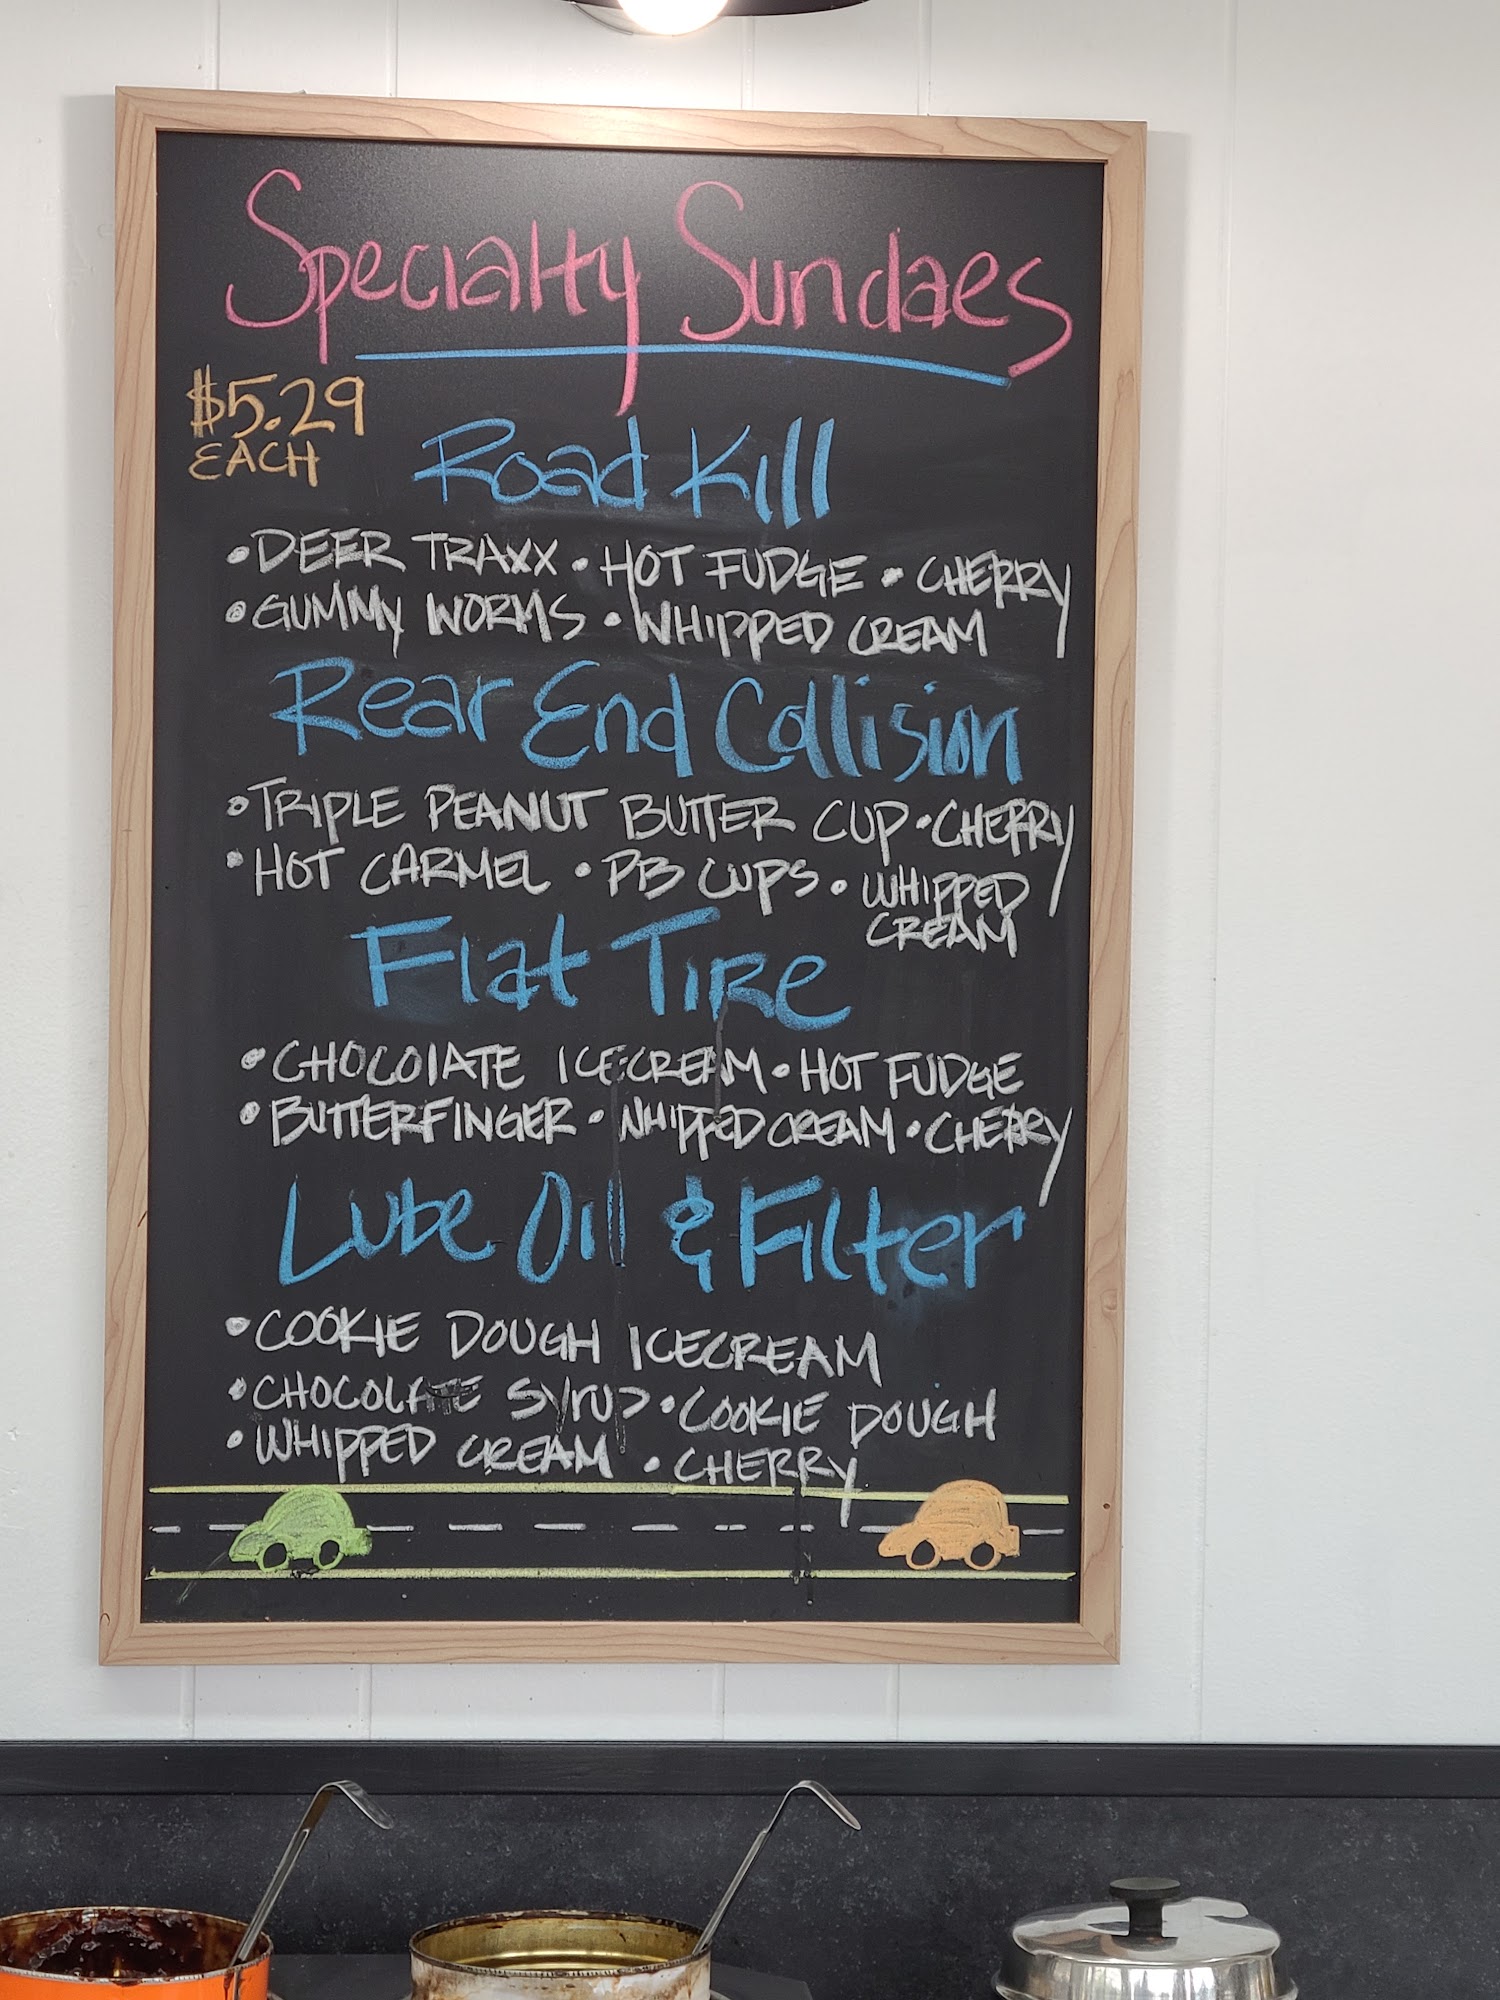 Specialty Sundaes
$5.29
EACH
Road Kill
• DEER TRAXX • HOT FUDGE • CHERRY
• GUMMY WORMS • WHIPPED CREAM
Rear End Collision
• TRIPLE PEANUT BUTTER CUP • CHERRY
• HOT CARMEL • PB CUPS • WHIPPED
CREAM
Flat Tire
• CHOCOLATE ICECREAM • HOT FUDGE
• BUTTERFINGER • WHIPPED CREAM • CHERRY
Lube Oil & Filter
• COOKIE DOUGH ICECREAM
• CHOCOLATE SYRUP • COOKIE DOUGH
• WHIPPED CREAM • CHERRY